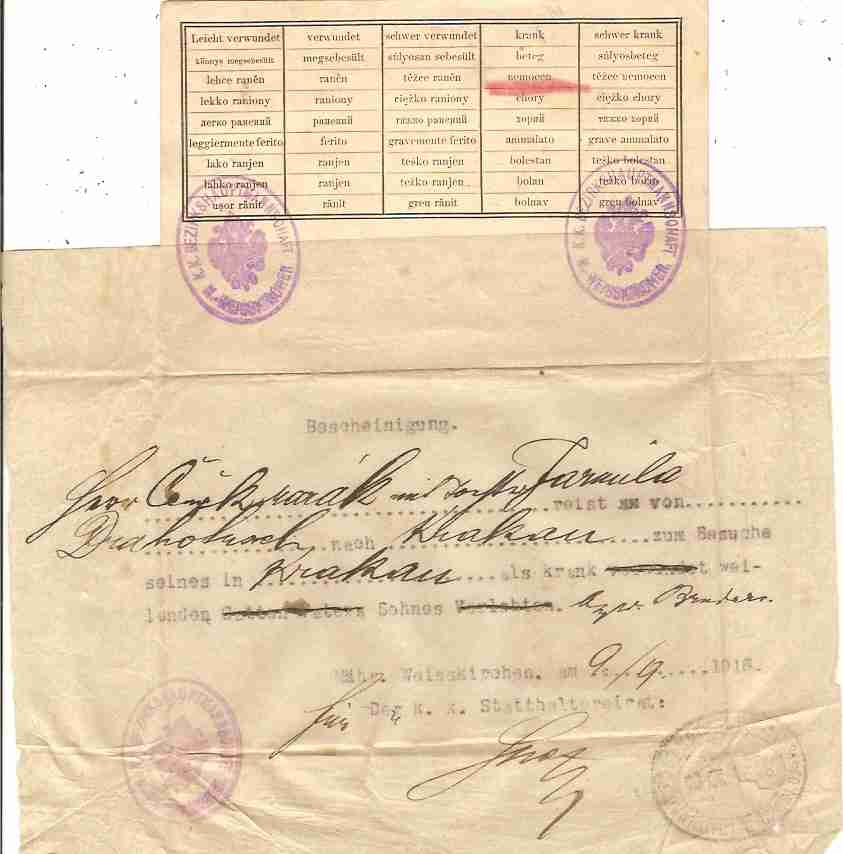 Leicht verwundet verwundet schwer verwundet krank schwer krank
könnys megsebesült megsebesült súlyosan sebesült beteg súlyosbeteg
lehce raněn raněn těžce raněn nemocen těžce nemocen
lekko raniony raniony ciężko raniony chory ciężko chory
легко ранений ранений тяжко ранений хорий тяжко хорий
leggiermente ferito ferito gravemente ferito ammalato grave ammalato
lako ranjen ranjen teško ranjen bolestan teško bolestan
lahko ranjen ranjen težko ranjen bolan težko bolan
ușor rănit rănit greu rănit bolnav greu bolnav
K.K. BEZIRKSHAUPTMANNSCHAFT M. WEISSKIRCHEN
K.K. BEZIRKSHAUPTMANNSCHAFT M. WEISSKIRCHEN
Bescheinigung.
Herr und Tochter Jarmila
reist von
nach Krakau zum Besuche
seines in Krakau als krank wei-
lenden Sohnes bzw. Bruders.
Mähr. Weisskirchen, am 9/9 1916.
Für Der k. k. Statthaltereirat: